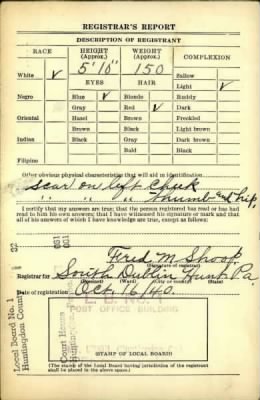 REGISTRAR'S REPORT
DESCRIPTION OF REGISTRANT
RACE HEIGHT (Approx.) WEIGHT (Approx.) COMPLEXION
5' 10" 150
White ✓ EYES HAIR Sallow
Light ✓
Negro Blue ✓ Blonde Ruddy
Gray Red ✓ Dark
Oriental Hazel Brown Freckled
Brown Black Light brown
Indian Black Gray Dark brown
Bald Black
Filipino
Other obvious physical characteristics that will aid in identification
scar on left cheek
" " " thumb and hip.
I certify that my answers are true; that the person registered has read or has had
read to him his own answers; that I have witnessed his signature or mark and that
all of his answers of which I have knowledge are true, except as follows:
Fred M. Shoop
Registrar for South Dublin Hunt Pa.
(Precinct) (Ward) (City or county) (State)
Date of registration Oct. 16/40.
Local Board No. 1 32
Huntingdon County 061
001
Court House
L. B. NO. 1
POST OFFICE BUILDING
STAMP OF LOCAL BOARD
(The stamp of the Local Board having jurisdiction of the registrant
shall be placed in the above space.)